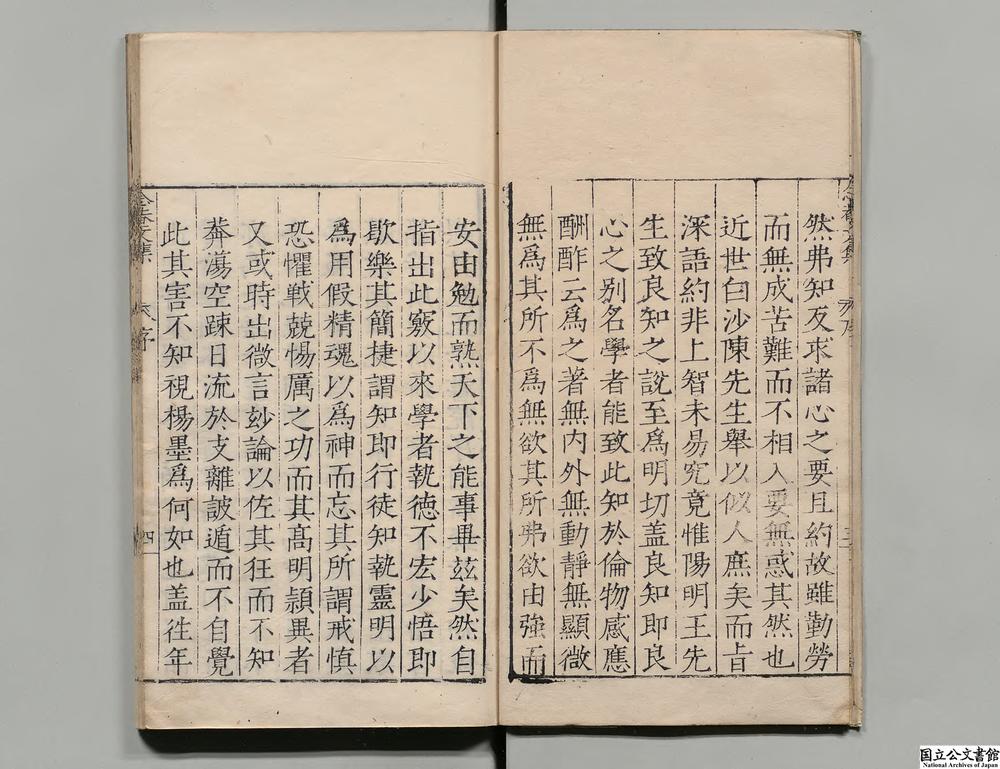 然弗知反求諸心之要且約故雖勤勞
而無成苦難而不相入要無惑其然也
近世白沙陳先生舉以似人庶矣而㫖
深語約非上智未易究竟惟陽明王先
生致良知之說至爲明切盖良知即良
心之别名學者能致此知於倫物感應
酬酢云爲之著無内外無動靜無顯微
無爲其所不爲無欲其所弗欲由強而
安由勉而熟天下之能事畢茲矣然自
指出此竅以來學者執德不宏少悟即
歇樂其簡捷謂知即行徒知執靈明以
爲用假精魂以爲神而忘其所謂戒慎
恐懼戰兢惕厲之功而其髙明頴異者
又或時出微言玅論以佐其狂而不知
莾蕩空踈日流於支離詖遁而不自覺
此其害不知視楊墨爲何如也盖徃年
序
四
国立公文書館
National Archives of Japan